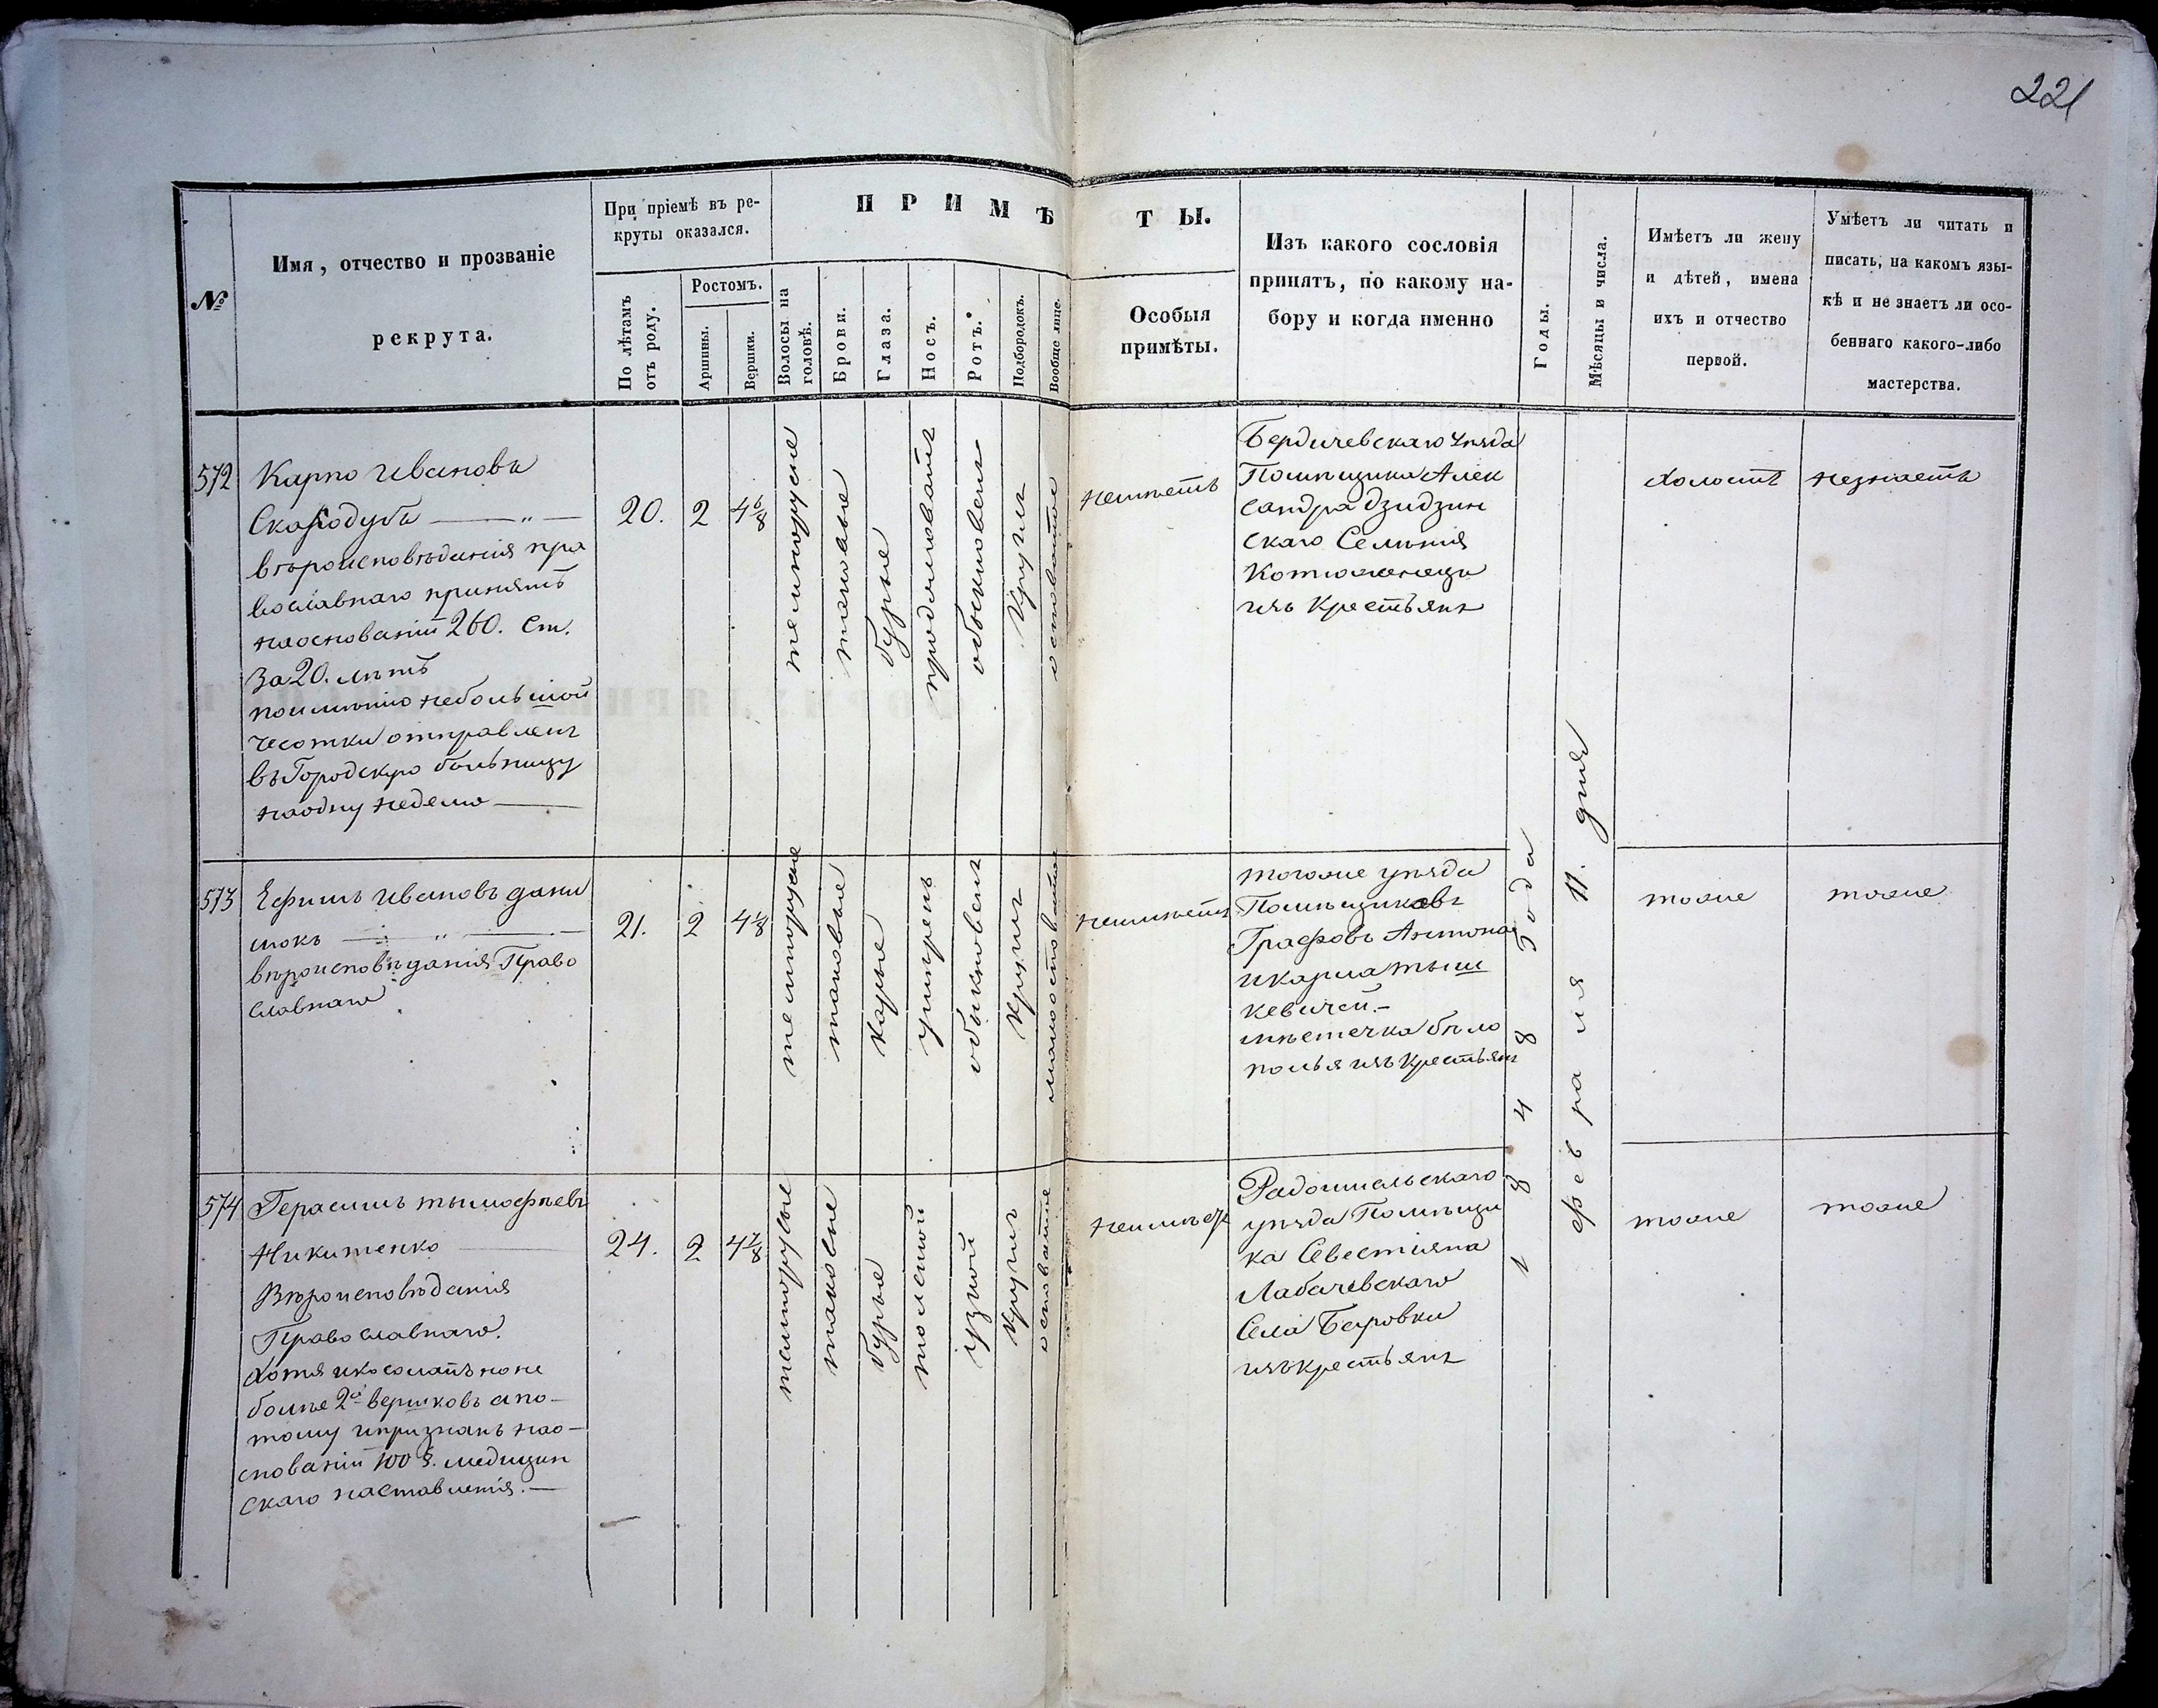 221
№
Имя, отчество и прозваніе
рекрута.
При пріемѣ въ ре-
круты оказался.
По лѣтамъ
отъ роду.
Ростомъ.
Аршины.
Вершки.
ПРИМѢТЫ.
Волосы на
головѣ.
Брови.
Глаза.
Носъ.
Ротъ.
Подбородокъ.
Вообще лице.
Особыя
примѣты.
Изъ какого сословія
принятъ, по какому на-
бору и когда именно
Годы.
Мѣсяцы и числа.
Имѣетъ ли жену
и дѣтей, имена
ихъ и отчество
первой.
Умѣетъ ли читать и
писать, на какомъ язы-
кѣ и не знаетъ ли осо-
беннаго какого-либо
мастерства.
572
Карпо Ивановъ
Скородубъ — „ —
вѣроисповѣданія пра
вославнаго принятъ
наоснованіи 260. Ст.
За 20. лѣтъ
поимѣнію небольшой
чесотки отправленъ
въ Городскую больницу
наодну неделю —
20.
2
4 6/8
темнорусые
таковые
бурые
продолговатъ
обыкновенъ
Круглъ
осповатое
неимѣетъ
Бердичевскаго уѣзда
Помѣщика Алек
сандра Дзидзин
скаго Селенія
Котюженецъ
изъ Крестьянъ
Холостъ
незнаетъ
573
Ефимъ Ивановъ дани
люкъ — „ —
вѣроисповѣданія Право
славнаго
21.
2
4 1/8
темнорусые
таковые
карые
умѣренъ
обыкновенъ
Круглъ
малоосповатое
неимѣетъ
тогоже уѣзда
Помѣщиковъ
Графовъ Антона
икарла тыш
кевичей. -
мѣстечка бѣло
полья изъ Крестьянъ
тоже
тоже
574
Герасимъ тымофѣевъ
Никитенко —
Вѣроисповѣданія
Православнаго.
Хотя икосолапъноне
болѣе 2х вершковъ апо-
тому ипризнанъ нао-
снованіи 100 §. медицин
скаго наставленія. —
24.
2
4 7/8
темнорусые
таковые
бурые
толстой
узкой
круглъ
осповатое
неимѣетъ
Радомысльскаго
уѣзда Помѣщи
ка Севестіяна
Лабачевскаго
Села
изъкрестьянъ
тоже
тоже
1848 Года
февраля 11. дня